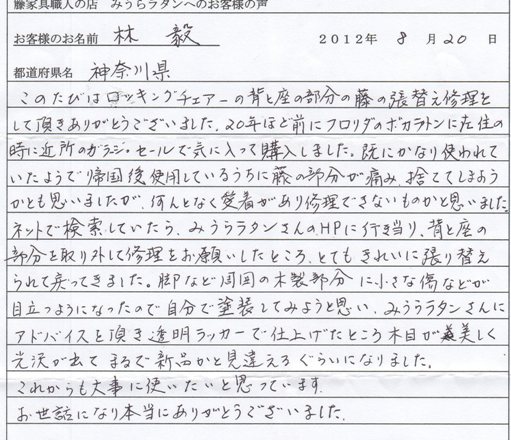 藤家具職人の店　みうらラタンへのお客様の声
お客様のお名前　林　毅　2012年　8月　20日
都道府県名　神奈川県
このたびはロッキングチェアーの背と座の部分の藤の張替え修理を
して頂きありがとうございました。20年ほど前にフロリダのボカラトンに在住の
時に近所のガラジ・セールで気に入って購入しました。既にかなり使われて
いたようで帰国後使用しているうちに藤の部分が痛み、捨ててしまおう
かとも思いましたが、何んとなく愛着があり修理できないものかと思いました。
ネットで検索していたら、みうらラタンさんのHPに行き当り、背と座の
部分を取り外して修理をお願いしたところ、とてもきれいに張り替え
られて戻ってきました。脚など周囲の木製部分に小さな傷などが
目立つようになったので自分で塗装してみようと思い、みうらラタンさんに
アドバイスを頂き透明ラッカーで仕上げたところ木目が美しく
光沢が出てまるで新品かと見違えるぐらいになりました。
これからも大事に使いたいと思っています。
お世話になり本当にありがとうございました。